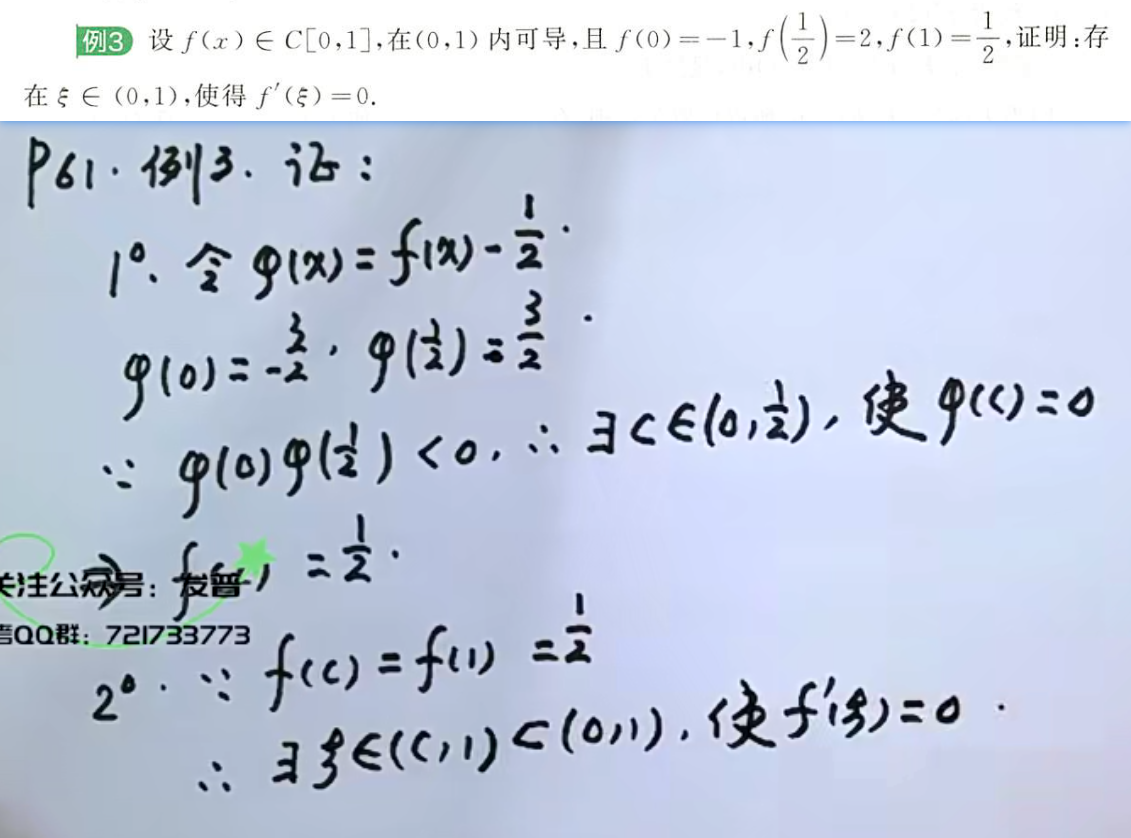 例3 设 f(x) ∈ C[0,1],在(0,1) 内可导,且 f(0)=-1,f(1/2)=2,f(1)=1/2,证明:存
在 ξ ∈ (0,1),使得 f′(ξ)=0.
P61. 例3. 证:
1°. 令 φ(x) = f(x) - 1/2.
φ(0) = -3/2, φ(1/2) = 3/2.
∵ φ(0)φ(1/2) < 0, ∴ ∃ c ∈ (0,1/2), 使 φ(c) = 0
⇒ f( ) = 1/2.
关注公众号: 发普
QQ群: 721733773
2°. ∵ f(c) = f(1) = 1/2
∴ ∃ ξ ∈ (c,1) ⊂ (0,1), 使 f′(ξ) = 0.